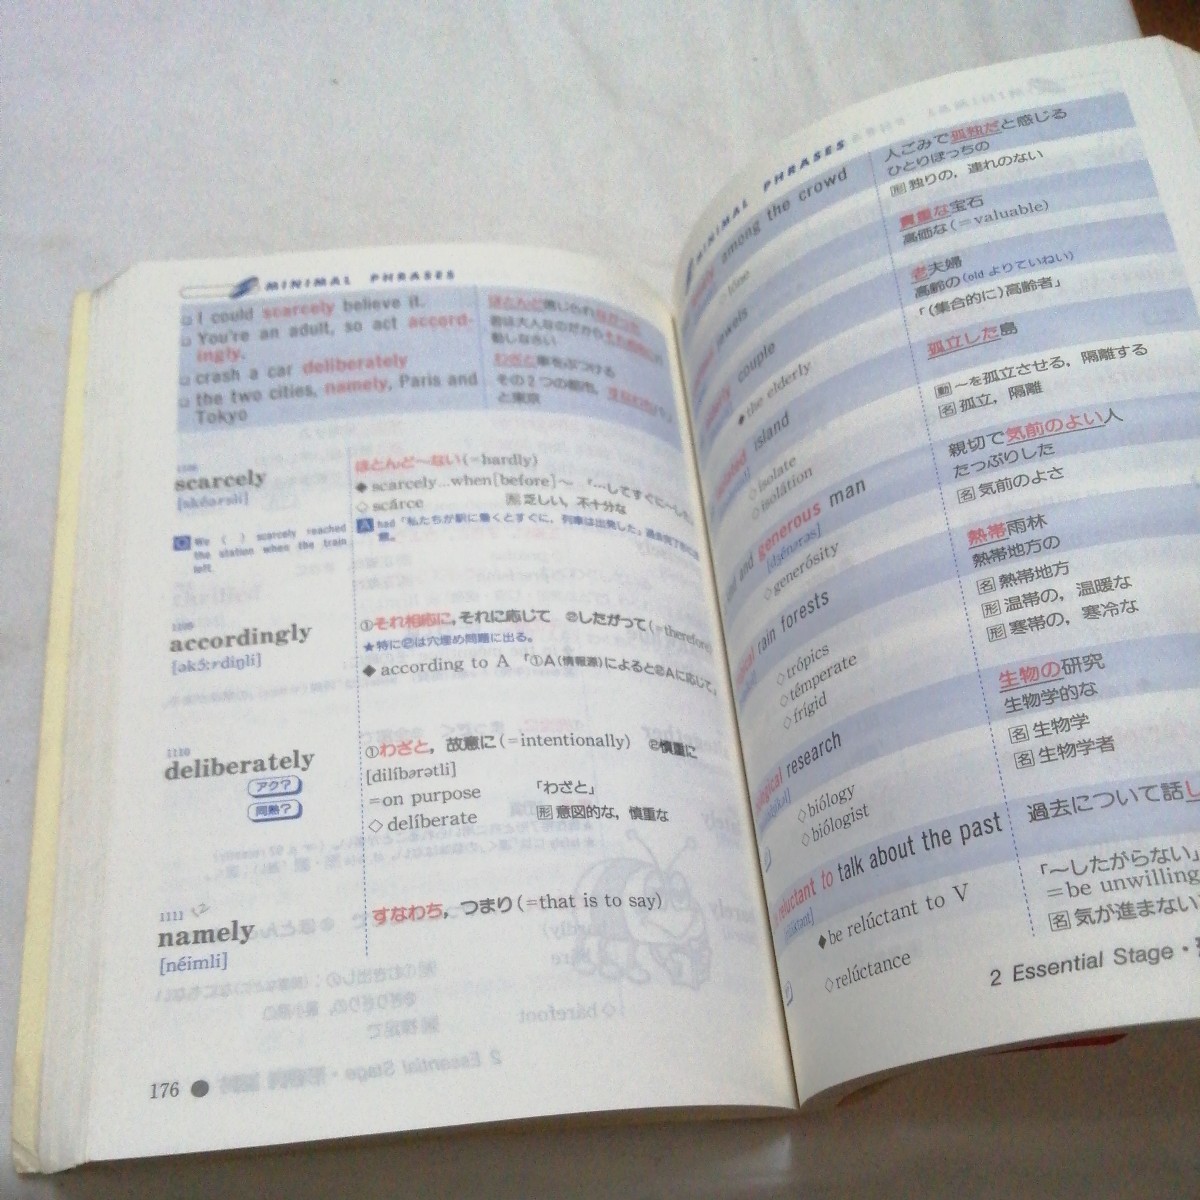 MINIMAL PHRASES
I could scarcely believe it.
You're an adult, so act accord-
ingly.
crash a car deliberately
the two cities, namely, Paris and
Tokyo
ほとんど信じられなかった
君は大人なのだから
動しなさい
わざと車をぶつける
その2つの都市,
と東京
scarcely
ほとんど〜ない(=hardly)
◆ scarcely...when[before]〜 「…してすぐに〜した」
◇ scárce 形 乏しい, 不十分な
Q We ( ) scarcely reached
the station when the train
left.
A had 「私たちが駅に着くとすぐに, 列車は出発した」
accordingly
[əkɔ́ːrdiŋli]
①それ相応に, それに応じて ②したがって(=therefore)
★特に②は穴埋め問題に出る。
◆ according to A 「①A(情報源)によると②Aに応じて」
1110
deliberately
アク?
同熟?
①わざと, 故意に(=intentionally) ②慎重に
[dilíbərətli]
=on purpose 「わざと」
◇ delíberate 形 意図的な, 慎重な
1111
namely
[néimli]
すなわち, つまり(=that is to say)
176 ●
MINIMAL PHRASES
among the crowd
人ごみで孤独だと感じる
ひとりぼっちの
形 独りの, 連れのない
jewels
貴重な宝石
高価な(=valuable)
couple
◆ the elderly
老夫婦
高齢の(old よりていねい)
「(集合的に)高齢者」
island
◇ isolate
◇ isolátion
孤立した島
動 〜を孤立させる, 隔離する
名 孤立, 隔離
and generous man
[dʒénərəs]
◇ generósity
親切で気前のよい人
たっぷりした
名 気前のよさ
rain forests
◇ trópics
◇ témperate
◇ frígid
熱帯雨林
熱帯地方の
名 熱帯地方
形 温帯の, 温暖な
形 寒帯の, 寒冷な
research
◇ biólogy
◇ biólogist
生物の研究
生物学的な
名 生物学
名 生物学者
reluctant to talk about the past
◆ be relúctant to V
◇ relúctance
過去について話し
「〜したがらない」
=be unwilling
名 気が進まない
2 Essential Stage・